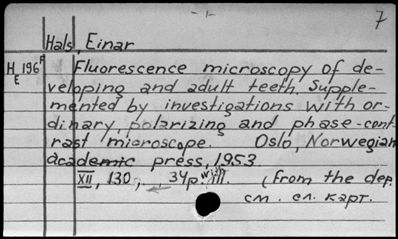 -1-
7
Hals, Einar
H 196 F
E
Fluorescence microscopy of de-
veloping and adult teeth. Supple-
mented by investigations with or-
dinary, polarizing and phase-cont-
rast microscope. Oslo, Norwegian
academic press, 1953.
XII, 130, 34p. with ill. (From the dep.
см. сл. карт.